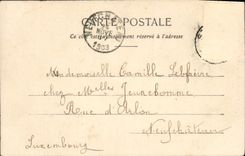 CARTE POSTALE
Ce côté est exclusivement réservé à l'adresse
NOVE
1903
Mademoiselle Camille Lefèvre
chez Melles Jeunehomme
Rue d'Arlon
Neufchâteau
Luxembourg